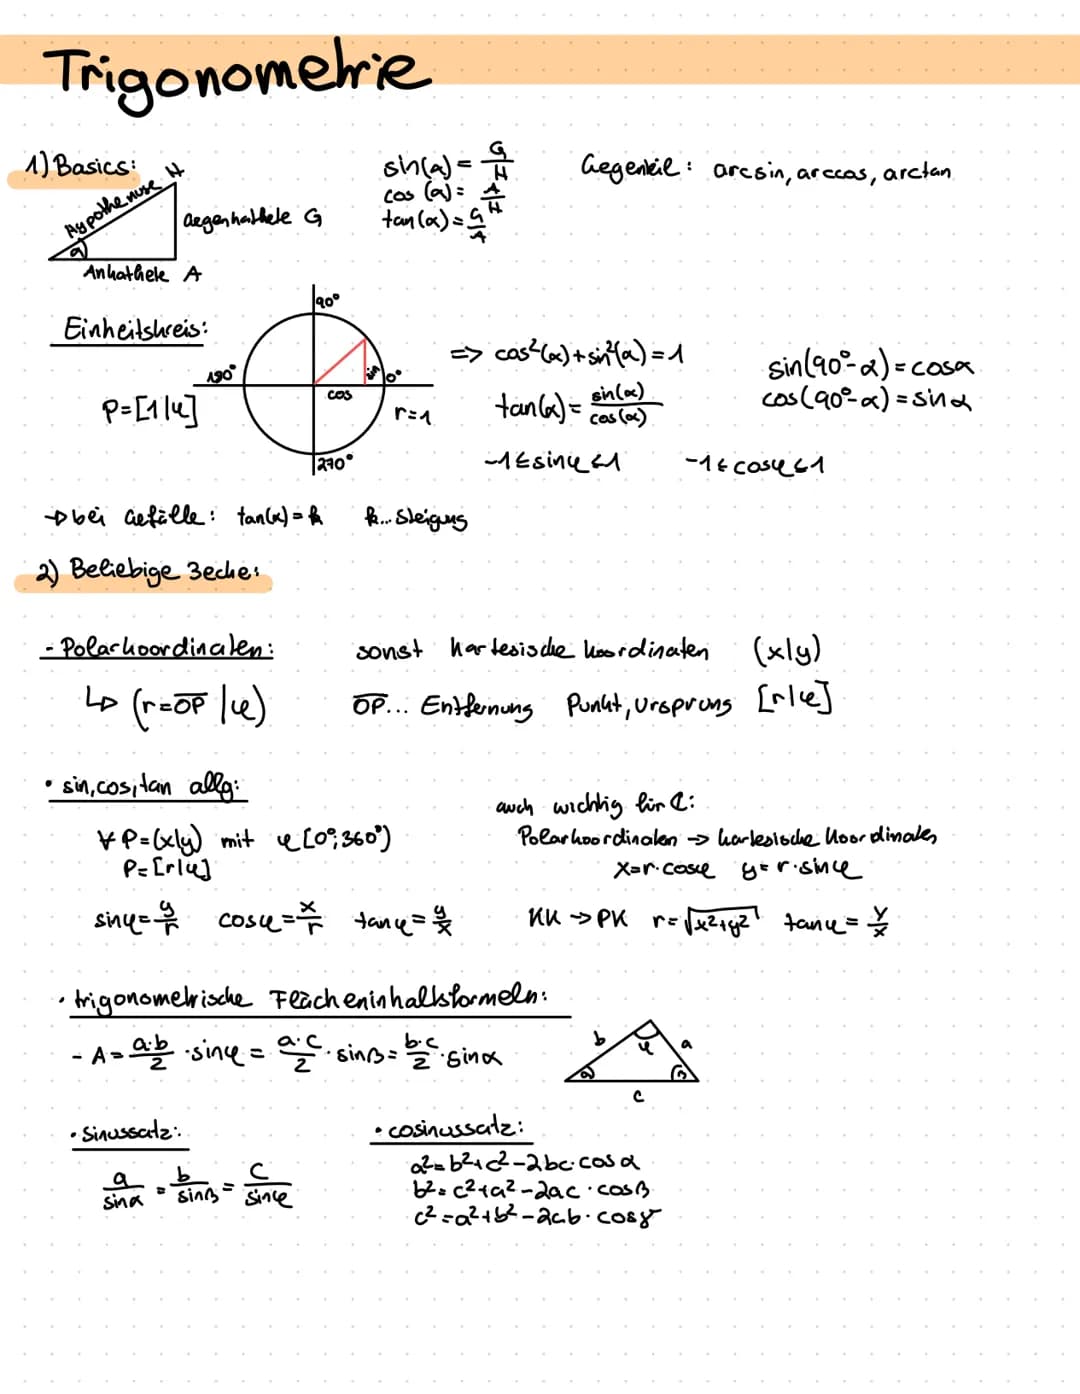 Trigonometrie
1) Basics:
H
Hypothenuse
Gegenkathete G
α
Ankathete A
sin(α) = G/H
cos (α) = A/H
tan(α) = G/A
Gegenteil: arcsin, arccos, arctan
Einheitskreis:
90°
180°
0°
270°
sin
cos
P=[1|φ]
r=1
=> cos²(α)+sin²(α)=1
tan(α)= sin(α)/cos(α)
-1≤sinφ≤1 -1≤cosφ≤1
sin(90°-α)=cosα
cos(90°-α)=sinα
→ bei Gefälle: tan(α)=k k... Steigung
2) Beliebige 3ecke:
- Polarkoordinaten: sonst kartesische Koordinaten (x|y)
↳ (r=OP̅ |φ) OP̅... Entfernung Punkt, Ursprung [r|φ]
• sin, cos, tan allg:
∀ P=(x|y) mit φ [0°;360°)
P=[r|φ]
sinφ=y/r cosφ=x/r tanφ=y/x
auch wichtig für ℂ:
Polarkoordinaten → kartesische Koordinaten
x=r·cosφ y=r·sinφ
KK → PK r=√x²+y² tanφ=y/x
• trigonometrische Flächeninhaltsformeln:
- A= a·b/2 ·sinφ = a·c/2 ·sinβ= b·c/2 ·sinα
b
φ
a
α
β
c
• Sinussatz:
a/sinα = b/sinβ = c/sinφ
• cosinussatz:
a²=b²+c²-2bc·cosα
b²=c²+a²-2ac·cosβ
c²=a²+b²-2ab·cosγ